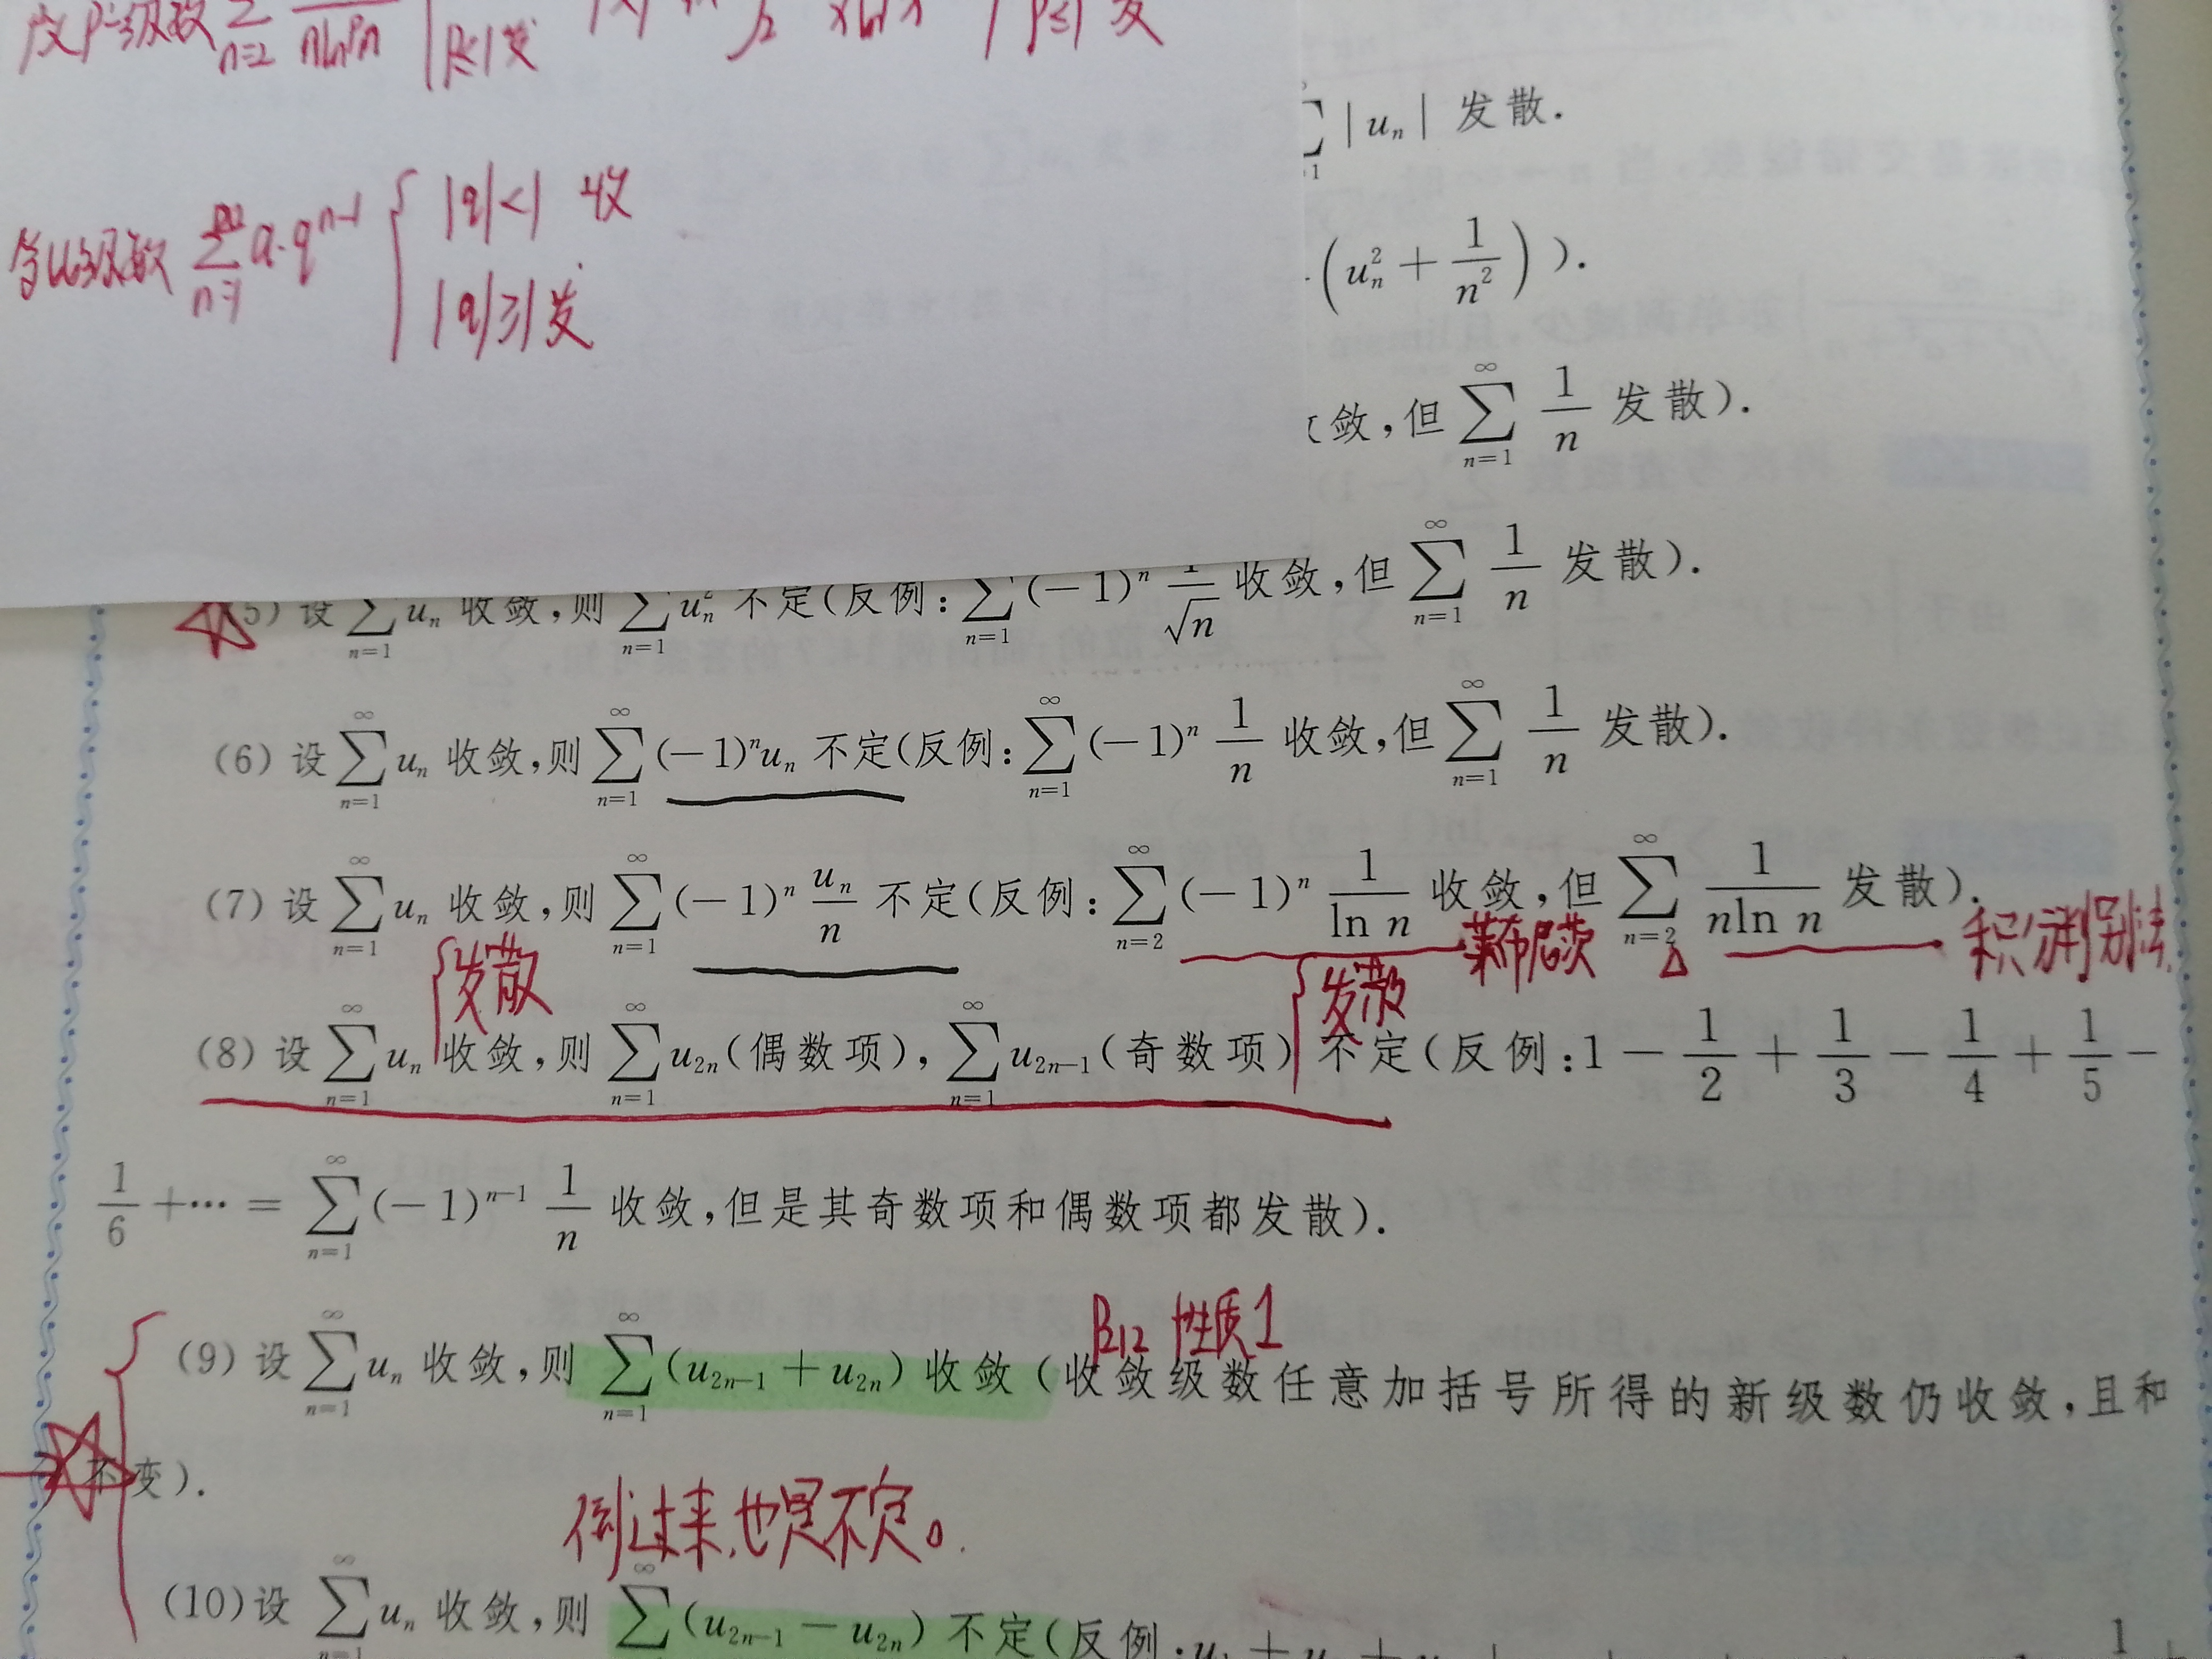 广义p-级数 ∑ n=2 1/(n ln^p n) p≤1 发 p≤1 发
∑|uₙ| 发散.
等比级数 ∑_{n=1}^∞ a·q^{n-1} { |q|<1 收
|q|≥1 发
(uₙ² + 1/n²)).
敛,但 ∑_{n=1}^∞ 1/n 发散).
5) 设 ∑_{n=1} uₙ 收敛,则 ∑_{n=1} uₙ² 不定(反例:∑_{n=1} (−1)ⁿ 1/√n 收敛,但 ∑_{n=1}^∞ 1/n 发散).
(6) 设 ∑_{n=1}^∞ uₙ 收敛,则 ∑_{n=1}^∞ (−1)ⁿuₙ 不定(反例:∑_{n=1}^∞ (−1)ⁿ 1/n 收敛,但 ∑_{n=1}^∞ 1/n 发散).
(7) 设 ∑_{n=1}^∞ uₙ 收敛,则 ∑_{n=1}^∞ (−1)ⁿ uₙ/n 不定(反例:∑_{n=2}^∞ (−1)ⁿ 1/ln n 收敛,但 ∑_{n=2}^∞ 1/(nln n) 发散).
发散 发散 莱布尼茨 积分判别法
(8) 设 ∑_{n=1}^∞ uₙ 收敛,则 ∑_{n=1}^∞ u₂ₙ(偶数项),∑_{n=1}^∞ u₂ₙ₋₁(奇数项) 不定(反例:1 − 1/2 + 1/3 − 1/4 + 1/5 −
1/6 +⋯ = ∑_{n=1}^∞ (−1)ⁿ⁻¹ 1/n 收敛,但是其奇数项和偶数项都发散).
P212 性质1
(9) 设 ∑_{n=1}^∞ uₙ 收敛,则 ∑_{n=1}^∞ (u₂ₙ₋₁ + u₂ₙ) 收敛(收敛级数任意加括号所得的新级数仍收敛,且和
不变).
倒过来,也是不定。
(10) 设 ∑_{n=1}^∞ uₙ 收敛,则 ∑^∞ (u₂ₙ₋₁ − u₂ₙ) 不定(反例:u₁ +